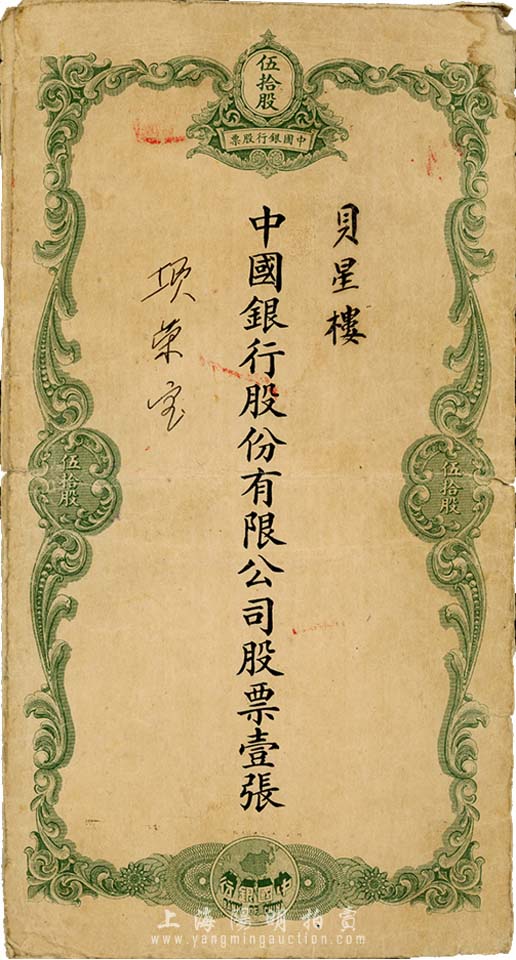 伍拾股
中國銀行股票
貝星樓
中國銀行股份有限公司股票壹張
項榮宝
伍拾股
伍拾股
中國銀行
上海陽明拍賣
www.yangmingauction.com